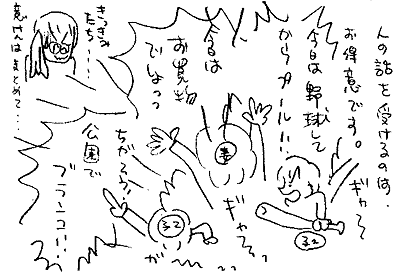 人の話を受けるのは、
お得意です。
今日は野球して
からプール!!
ギャー
今日は
お買物
でしょっ
ギャー
ちがろう!
公園で
ブランコ!!
が
きっきみ
たち…
意けんはまとめて…